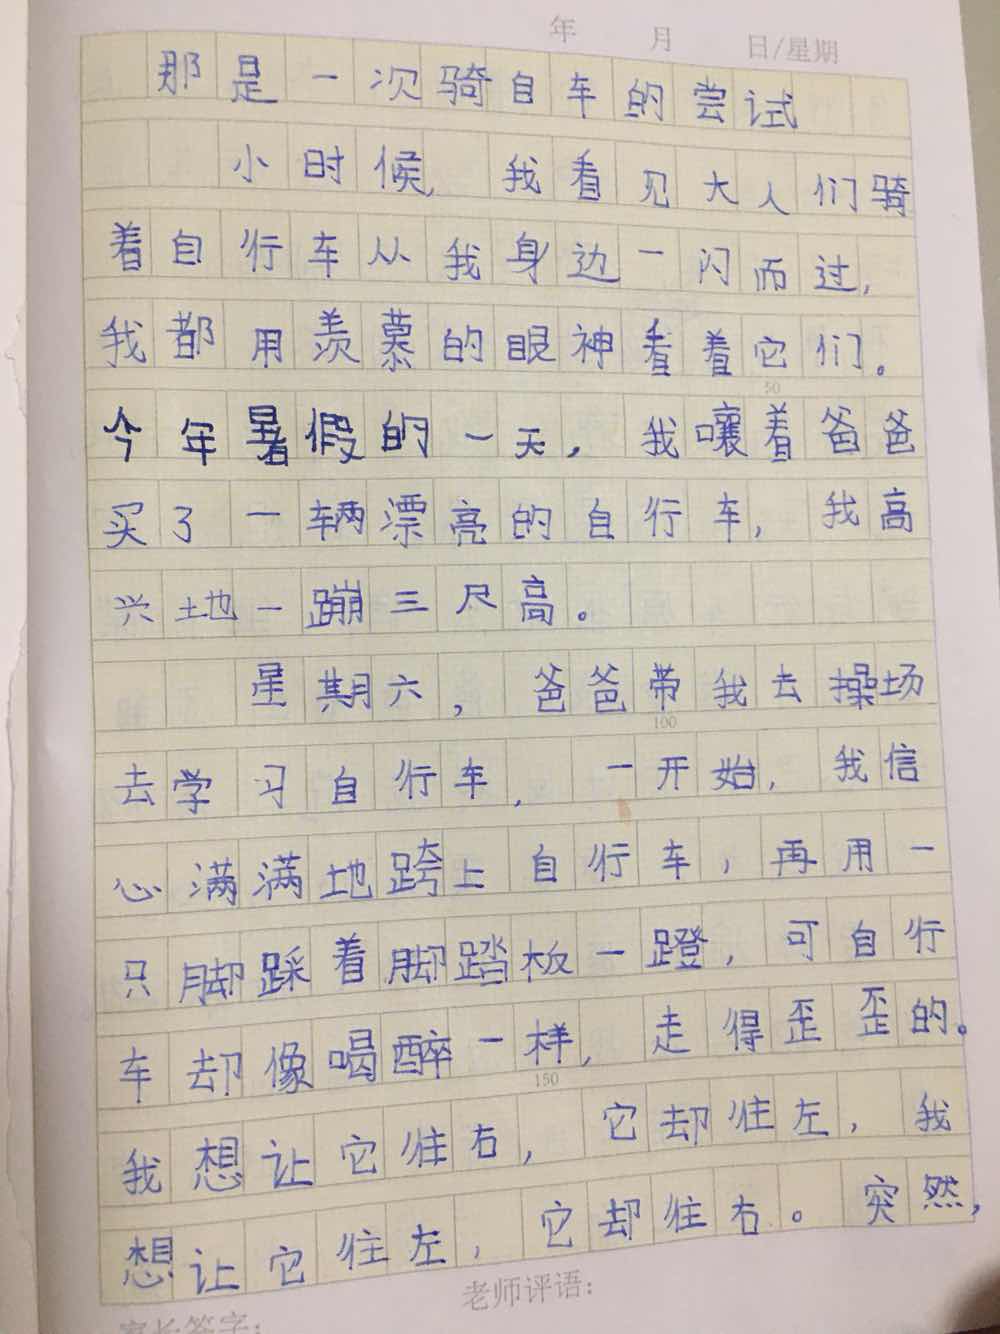 年 月 日/星期
那是一次骑自车的尝试
小时候,我看见大人们骑
着自行车从我身边一闪而过,
我都用羡慕的眼神看着它们。
50
今年暑假的一天,我嚷着爸爸
买了一辆漂亮的自行车,我高
兴地一蹦三尺高。
星期六,爸爸带我去操场
100
去学习自行车,一开始,我信
心满满地跨上自行车,再用一
只脚踩着脚踏板一蹬,可自行
车却像喝醉一样,走得歪歪的。
150
我想让它往右,它却往左,我
想让它往左,它却往右。突然,
老师评语:
家长签字: